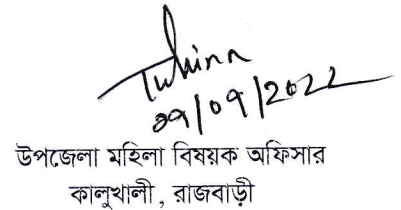 Tuhina
২৭/০৭/2022
উপজেলা মহিলা বিষয়ক অফিসার
কালুখালী, রাজবাড়ী